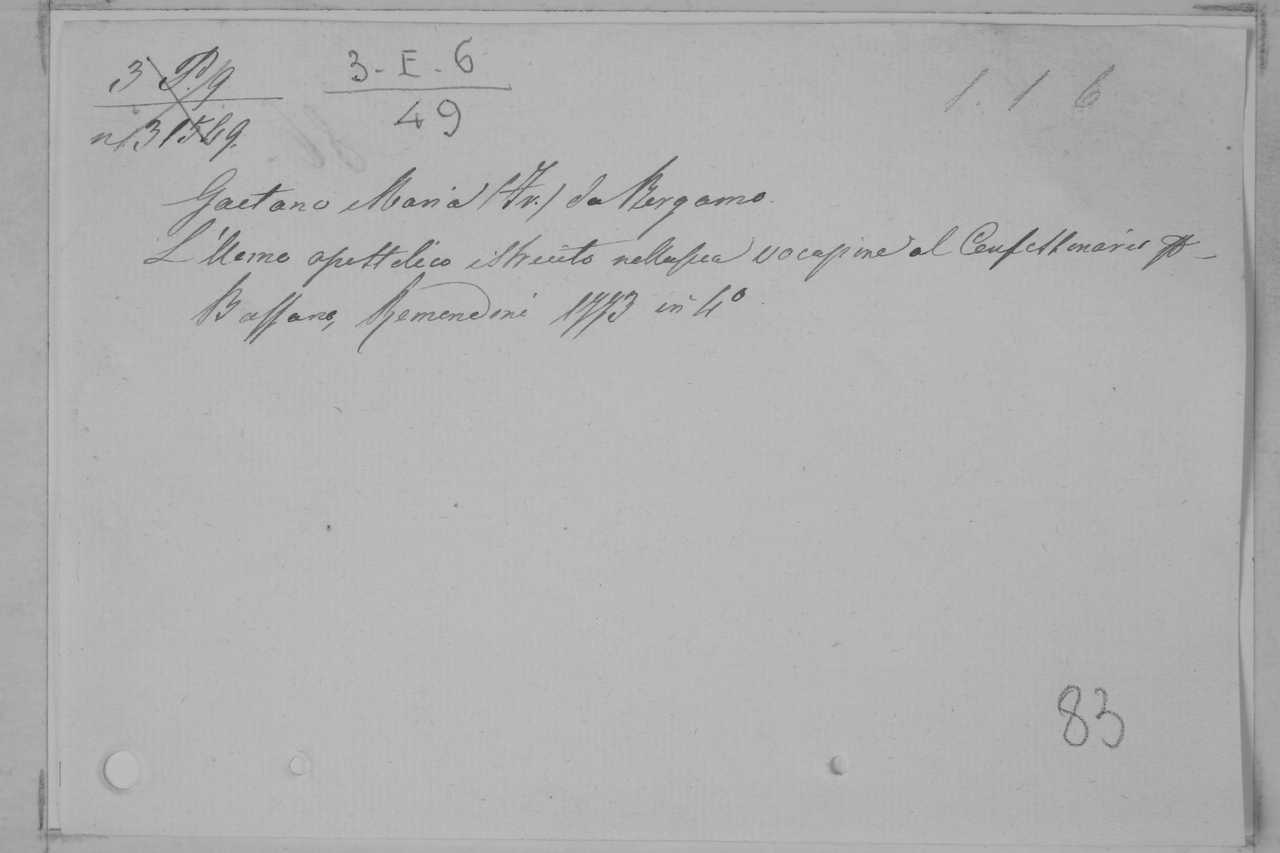 3-E-6
49
1. 1 6
Gaetano Maria (Fr.) da Bergamo.
L'Uomo apostolico istruito nella sua vocazione al Confessionario
Bassano, Remondini 1773 in 4°
83